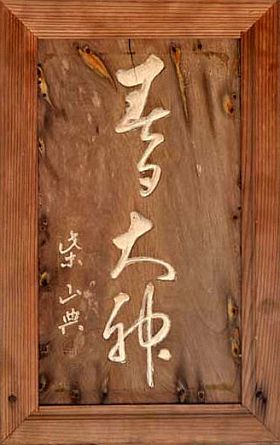 春大神
柴山典